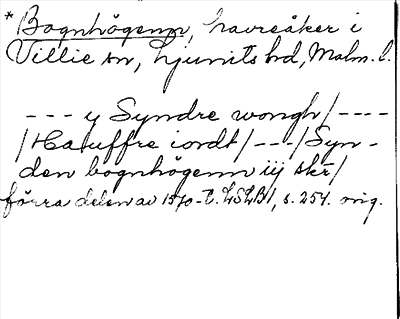 * Bognhögenn, havreåker i
Villie sn, Ljunits hd, Malm. l.
- - - y Syndre wongh/ - - - -
/Hauffre iordt/ - - -/Syn-
den bognhögenn iij skr/
förra delen av 1570-t. s. 254. orig.